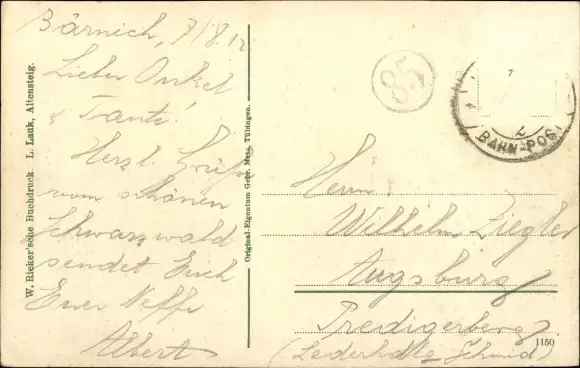 Bärnich, 7/8.12
Lieber Onkel
& Tante!
Herzl. Grüße
vom schönen
Schwarzwald
sendet Euch
Euer Neffe
Albert
W. Rieker'sche Buchdruck. L. Lauk, Altensteig.
Original-Eigentum Gebr. Metz, Tübingen.
85
7
2
BAHN-POST
Herrn
Wilhelm Ziegler
Augsburg
Predigerberg
(Lederhdlg Schmid)
1150